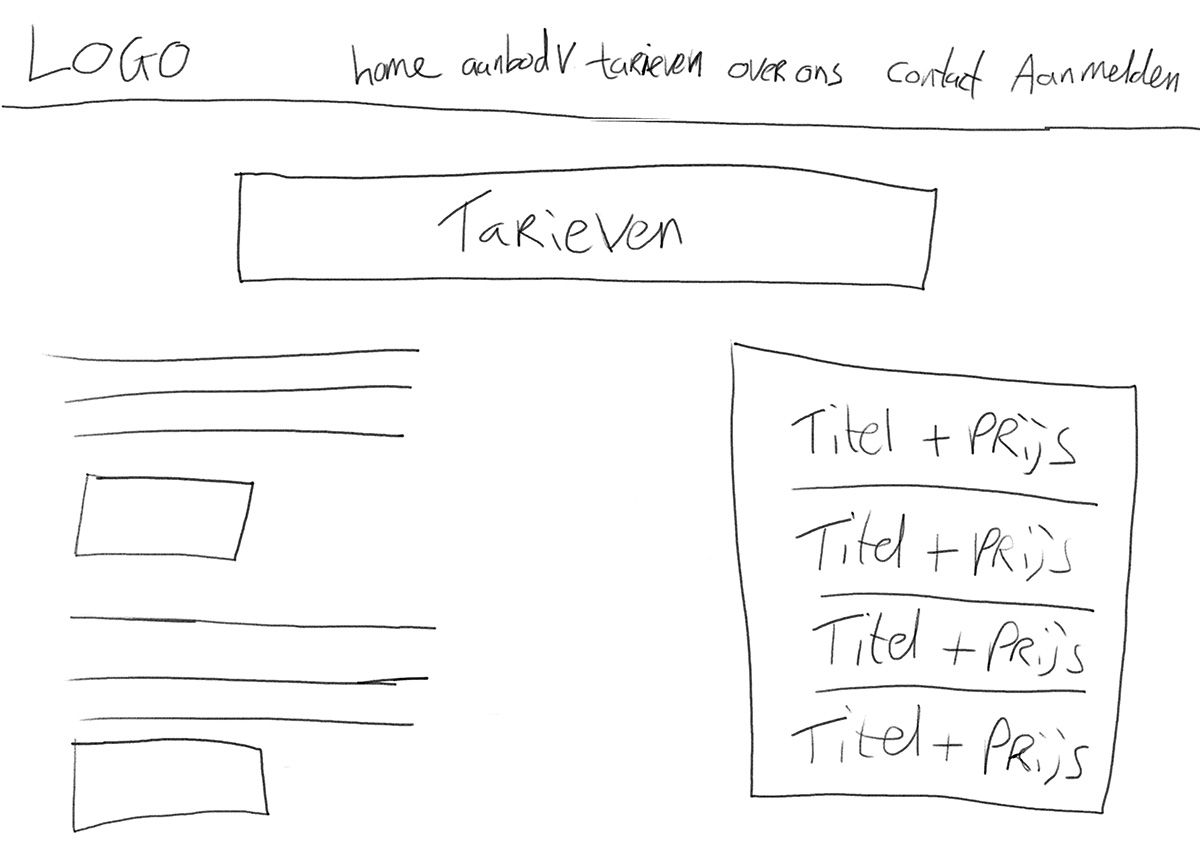 LOGO home aanbod V tarieven over ons Contact Aanmelden
Tarieven
Titel + PRijs
Titel + PRijs
Titel + PRijs
Titel + PRijs